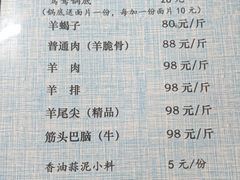 鸳鸯锅底 20元
(锅底送面片一份,每加一份面片10元)
羊蝎子 80元/斤
普通肉(羊脆骨) 88元/斤
羊肉 98元/斤
羊排 98元/斤
羊尾尖(精品) 98元/斤
筋头巴脑(牛) 98元/斤
香油蒜泥小料 5元/份